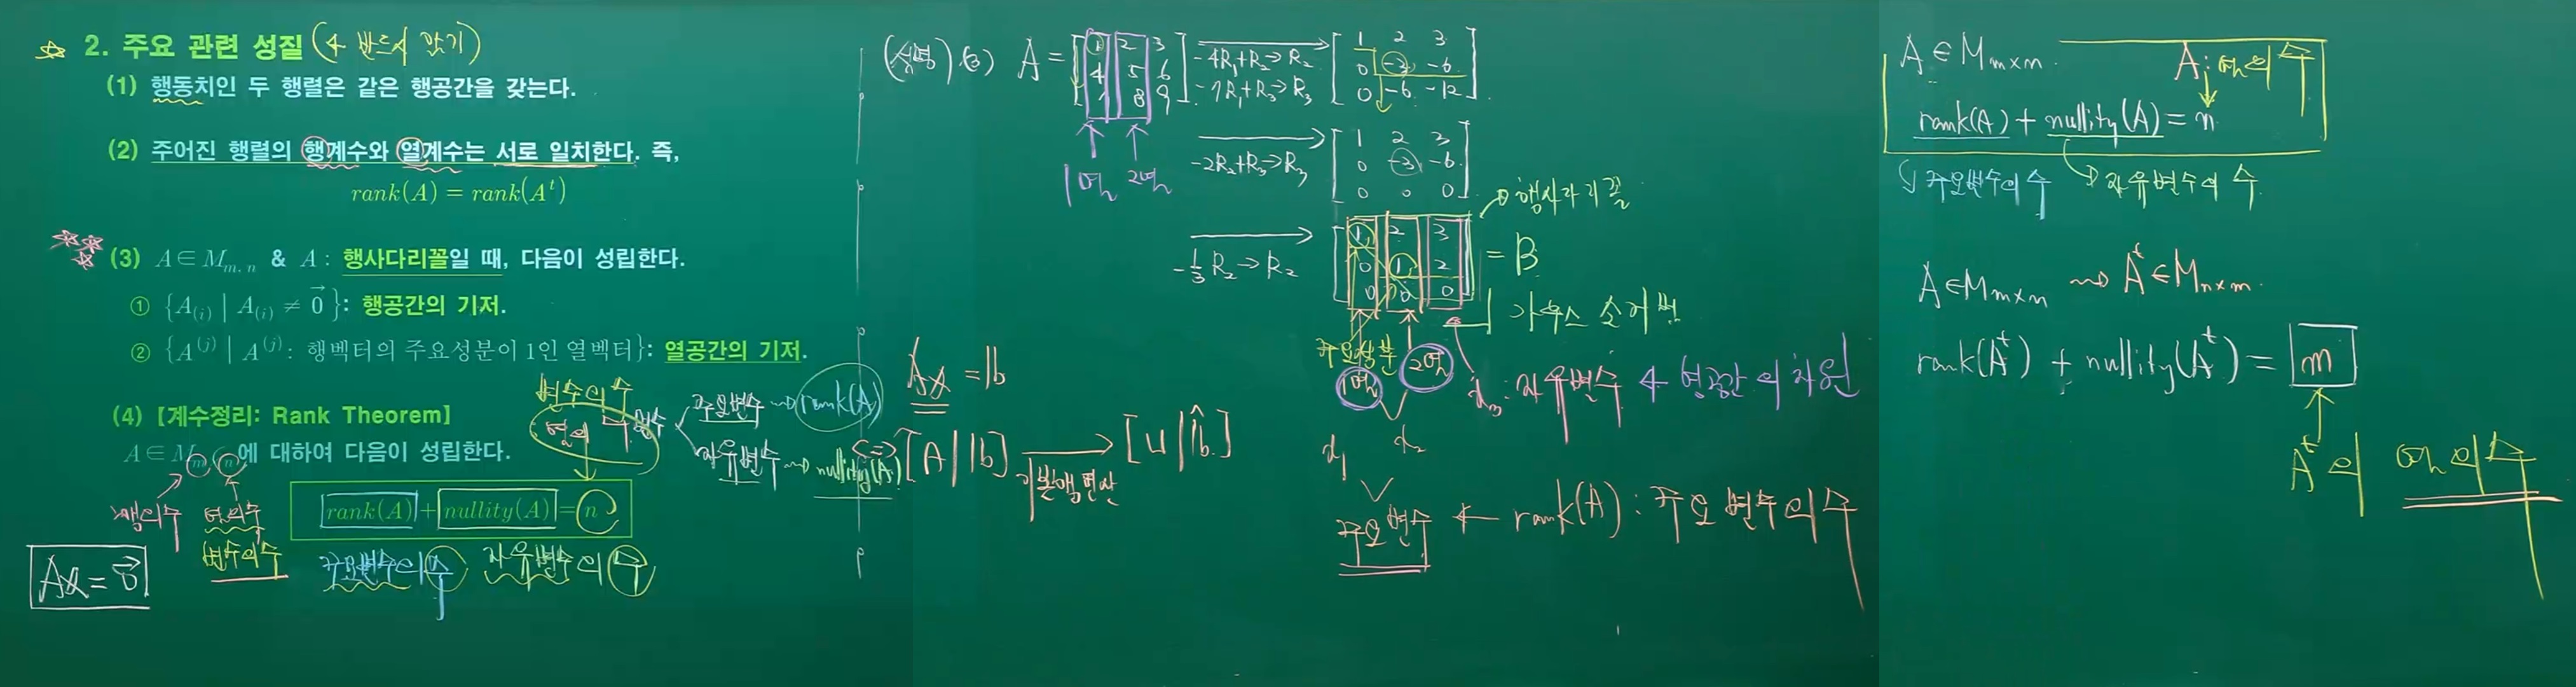 ☆ 2. 주요 관련 성질 (← 반드시 암기)
(1) 행동치인 두 행렬은 같은 행공간을 갖는다.
(2) 주어진 행렬의 행계수와 열계수는 서로 일치한다. 즉,
rank(A) = rank(Aᵗ)
☆☆☆ (3) A ∈ Mₘ,ₙ & A : 행사다리꼴일 때, 다음이 성립한다.
① {A₍ᵢ₎ | A₍ᵢ₎ ≠ 0⃗}: 행공간의 기저.
② {A⁽ʲ⁾ | A⁽ʲ⁾: 행벡터의 주요성분이 1인 열벡터}: 열공간의 기저.
(4) 【계수정리: Rank Theorem】
A ∈ Mₘ,ₙ에 대하여 다음이 성립한다.
행의수 열의수
변수의수
변수의 수
열의 수
rank(A) + nullity(A) = n
주요변수의 수 자유변수의 수
Ax = 0⃗
변수
주요변수 → rank(A)
자유변수 → nullity(A)
Ax = b
⇔ [A | b] → [U | b̂]
기본행연산
(설명) (3) A = [1 2 3
4 5 6
7 8 9]
-4R₁+R₂→R₂
-7R₁+R₃→R₃
[1 2 3
0 -3 -6
0 -6 -12]
1열 2열
-2R₂+R₃→R₃
[1 2 3
0 -3 -6
0 0 0]
-⅓R₂→R₂
[1 2 3
0 1 2
0 0 0] = B
→ 행사다리꼴
가우스 소거법
주요성분
1열 2열
x₃ : 자유변수 ← 영공간의 차원
x₁ x₂
주요변수 ← rank(A) : 주요변수의 수
A ∈ Mₘₓₙ
A: 열의 수
rank(A) + nullity(A) = n
주요변수의 수 자유변수의 수
A ∈ Mₘₓₙ ⇝ Aᵗ ∈ Mₙₓₘ.
rank(Aᵗ) + nullity(Aᵗ) = m
Aᵗ의 열의 수